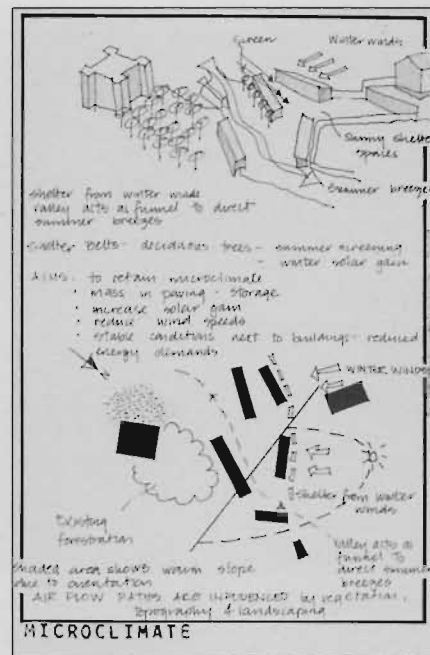 Screen
Winter winds
Sunny shelter
spaces
Summer breezes
shelter from winter winds
valley acts as funnel to direct
summer breezes
Shelter Belts - deciduous trees - summer screening
- winter solar gain
AIMS - to retain microclimate
• mass in paving - storage
• increase solar gain
• reduce wind speeds
• stable conditions next to buildings - reduced
energy demands
N
WINTER WINDS
Existing
forestration
Shelter from winter
winds
Valley acts as
funnel to
direct summer
breezes
shaded area shows warm slope
due to orientation
AIR FLOW PATHS ARE INFLUENCED by vegetation,
topography & landscaping
MICROCLIMATE